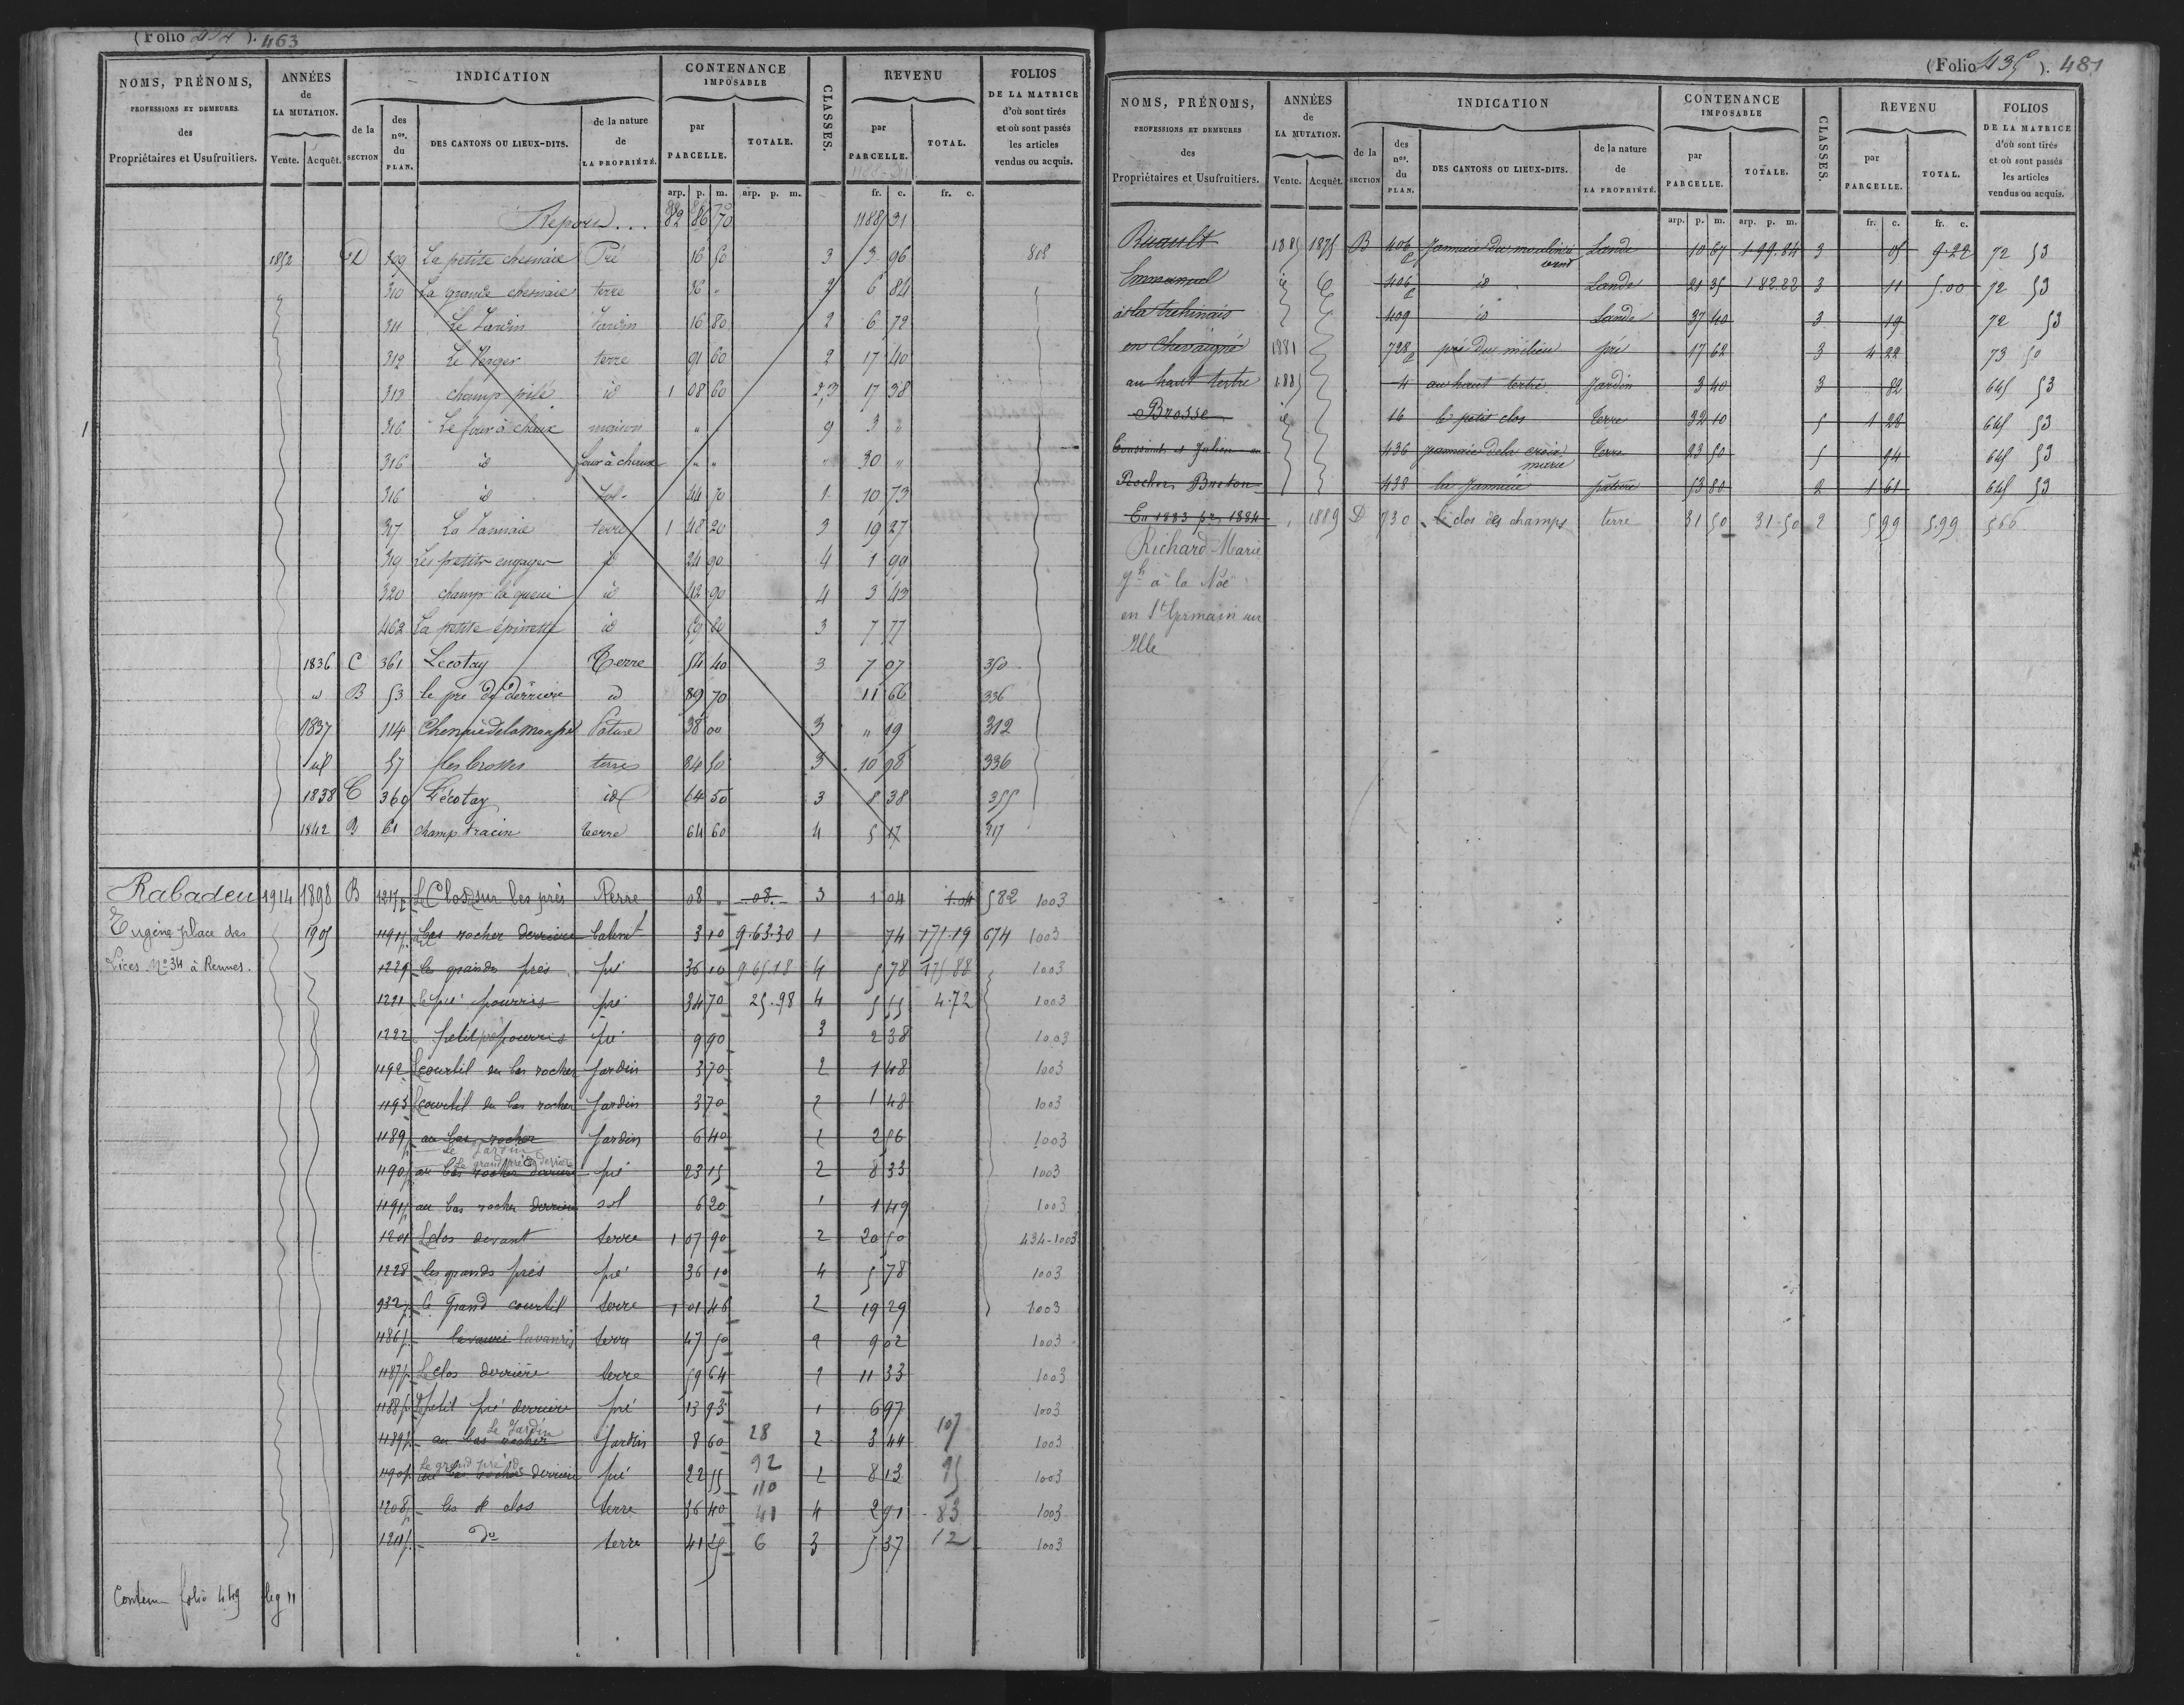 (Folio 434). 463
NOMS, PRÉNOMS, PROFESSIONS ET DEMEURES des Propriétaires et Usufruitiers.
ANNÉES de LA MUTATION. Vente. Acquêt.
INDICATION
de la SECTION
des nos. du PLAN.
DES CANTONS OU LIEUX-DITS.
de la nature de LA PROPRIÉTÉ.
CONTENANCE IMPOSABLE
par PARCELLE. TOTALE.
CLASSES.
REVENU
par PARCELLE. TOTAL.
FOLIOS DE LA MATRICE d'où sont tirés et où sont passés les articles vendus ou acquis.
arp. p. m. arp. p. m. fr. c. fr. c.
Report... 82 86 70 1188 31
1852 D 309 La petite chesnaie Pré 16 50 3 3 96 808
310 La grande chesnaie terre 36 " 2 6 84
311 Le Jardin Jardin 16 80 2 6 72
312 Le Verger terre 91 60 2 17 40
313 champ pilé id 1 08 60 2,3 17 38
316 Le four à chaux maison " 9 3 "
316 id four à chaux " " " 30 "
316 id Sol 44 70 1 10 73
317 La Jannaie terre 1 48 20 3 19 27
319 Les petits engager id 24 90 4 1 99
320 champ la queue id 42 90 4 3 43
462 La petite épinette id 59 80 3 7 77
1836 C 361 Lecotay Terre 54 40 3 7 07 350
id B 53 le pré de derriere id 89 70 11 66 336
1837 114 Pature 38 00 3 " 19 312
id 57 les brosses terre 84 50 3 10 98 336
1838 C 360 L'écotay id 64 50 3 8 38 355
1842 B 61 champ tracin terre 64 60 4 5 17 317
Rabadeu 1914 1898 B 1217p Le Clos sur les prés Terre 08 " 08. 3 1 04 1.04 582 1003
Eugène place des 1905 1191p Bas rocher derriere batimt 3 10 9.63.30 1 74 171.19 674 1003
Lices No 34 à Rennes. 1229 les grands prés pré 36 10 9.65.18 4 5 78 175.88 1003
1221 le pré pourris pré 34 70 25.98 4 5 55 4.72 1003
1222 petit pré pourris pré 9 90 3 2 38 1003
1192 Le courtil du bas rocher jardin 3 70 2 1 48 1003
1193 Le courtil du bas rocher jardin 3 70 2 1 48 1003
1189p au bas rocher jardin 6 40 2 2 56 1003
Le Jardin
Le grand pré de derrière
1190p au bas rocher derriere pré 23 15 2 8 33 1003
1191p au bas rocher derriere sol 6 20 1 1 49 1003
1201 Le clos devant terre 1 07 90 2 20 50 434-1003
1228 les grands prés pré 36 10 4 5 78 1003
932p le Grand courtil terre 1 01 46 2 19 29 1003
1186p lavauris terre 47 50 2 9 02 1003
1187p Le clos derrière terre 59 64 2 11 33 1003
1188p Le petit pré derriere pré 13 93 1 6 97 1003
Le Jardin
1189p au bas rocher Jardin 8 60 28 2 3 44 107 1003
Le grand pré de
1190p au bas rocher derriere pré 22 55 92 2 8 13 95 1003
110
1208p les clos terre 36 40 41 4 2 91 83 1003
1211p do terre 41 25 6 3 5 37 12 1003
Contenu folio 449 leg 11
(Folio 435). 481
NOMS, PRÉNOMS, PROFESSIONS ET DEMEURES des Propriétaires et Usufruitiers.
ANNÉES de LA MUTATION. Vente. Acquêt.
INDICATION
de la SECTION
des nos. du PLAN.
DES CANTONS OU LIEUX-DITS.
de la nature de LA PROPRIÉTÉ.
CONTENANCE IMPOSABLE
par PARCELLE. TOTALE.
CLASSES.
REVENU
par PARCELLE. TOTAL.
FOLIOS DE LA MATRICE d'où sont tirés et où sont passés les articles vendus ou acquis.
arp. p. m. arp. p. m. fr. c. fr. c.
Ruault 1885 1875 B 406p Jannaie du moulin à vent Lande 10 67 1.99.84 3 05 9.22 72 53
Emmanuel id 406p id Lande 21 35 1.82.22 3 11 5.00 72 53
à la trehinais 409 id Lande 37 40 3 19 72 53
en Chevaigné 1881 728p pré du milieu pré 17 62 3 4 22 73 50
au haut tertre 1885 4 au haut tertre Jardin 3 40 3 82 645 53
Brosse id 16 le petit clos terre 32 10 5 1 28 645 53
Toussaint et Julien en 436 Jannaie de la croix marie terre 23 50 5 94 645 53
Rocher Breton 438 la Jannaie pature 53 80 2 1 61 645 53
En 1883 pr 1884 1889 D 730 le clos des champs terre 31 50 31.50 2 5 99 5.99 566
Richard Marie
à la Noë
en St Germain sur
Ille